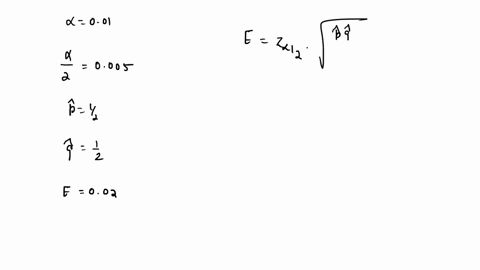 α = 0.01
α/2 = 0.005
p̂ = 1/2
q̂ = 1/2
E = 0.02
E = z_{α/2} · √(p̂ q̂)